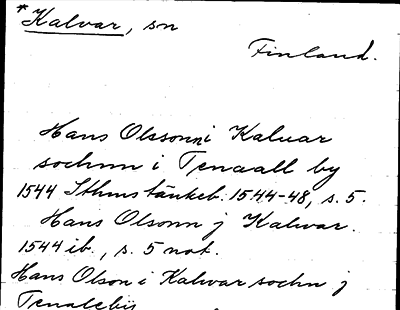 *Kalvar, sn
Finland.
Hans Olssonn i Kalvar
sochnn i Tenaall by
1544 Sthms tänkeb. 1544-48, s. 5.
Hans Olsonn j Kalvar.
1544 ib., s. 5 not.
Hans Olson i Kalvar sochn j
Tenaleby